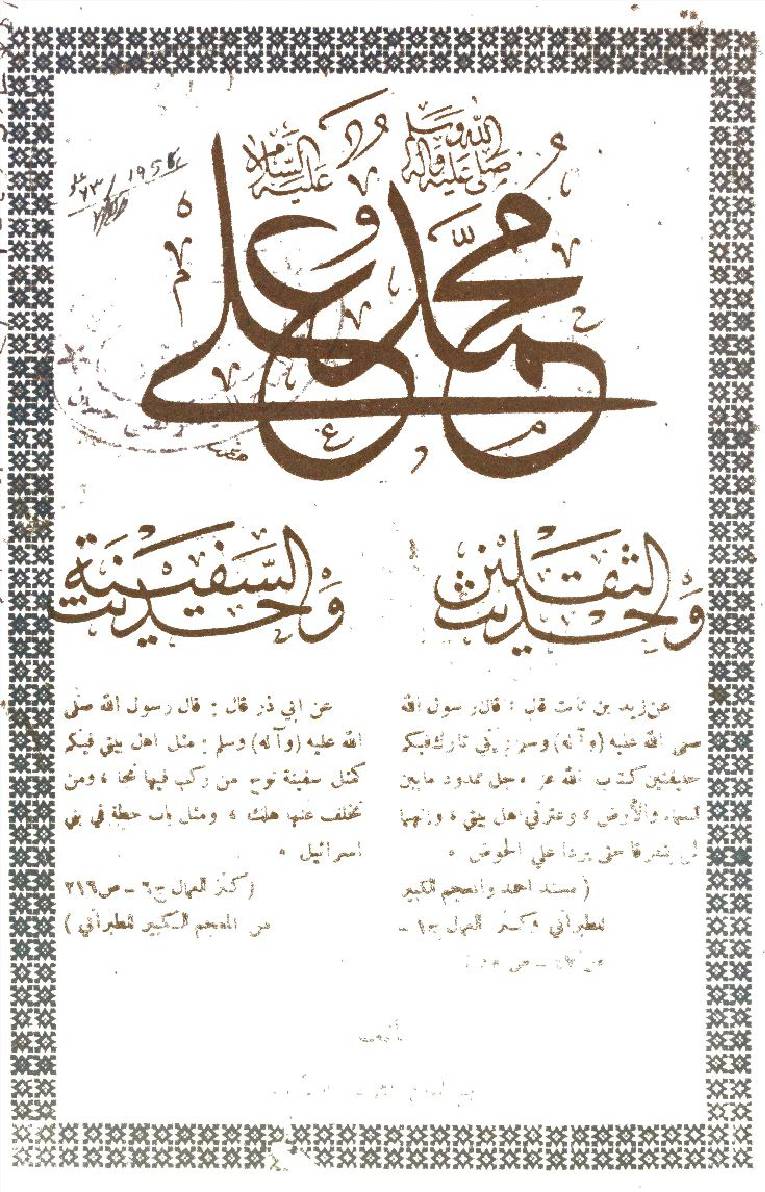 محمد وعلي
صلى الله عليه وآله وسلم
عليه السلام
1954
وحديث الثقلين
عن زيد بن ثابت قال : قال رسول الله
صلى الله عليه (وآله) وسلم : إني تارك فيكم
خليفتين كتاب الله عز وجل ممدود ما بين
السماء والأرض ، وعترتي أهل بيتي ، وإنهما
لن يفترقا حتى يردا علي الحوض .
( مسند احمد والمعجم الكبير
للطبراني وكنز العمال ج١ -
وحديث السفينة
عن ابي ذر قال : قال رسول الله صلى
الله عليه (وآله) وسلم : مثل اهل بيتي فيكم
كمثل سفينة نوح من ركب فيها نجا ، ومن
تخلف عنها هلك ، ومثل باب حطة في بني
اسرائيل .
( كنز العمال ج٦ - ص٢١٦
من المعجم الكبير للطبراني )